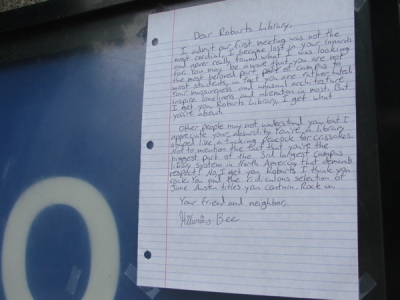 Dear Robarts Library,
I admit our first meeting was not the
most cordial. I became lost in your innards
and never really found what I was looking
for. You may be aware that you are not
the most beloved part of campus to
most students, in fact you are rather hated.
Your massiveness and unusual architecture
inspire loneliness and alienation in most. But
I get you Robarts Library, I get what
you're about.
Other people may not understand you but I
appreciate your absurdity. You're a library
shaped like a fucking peacock for
Not to mention the fact that you're the
biggest part of the 3rd largest campus
library system in North America, that demands
respect! No, I get you Robarts. I think you
rock. You and the ridiculous selection of
Jane Austen titles you contain. Rock on.
Your friend and neighbor,
Bee
O